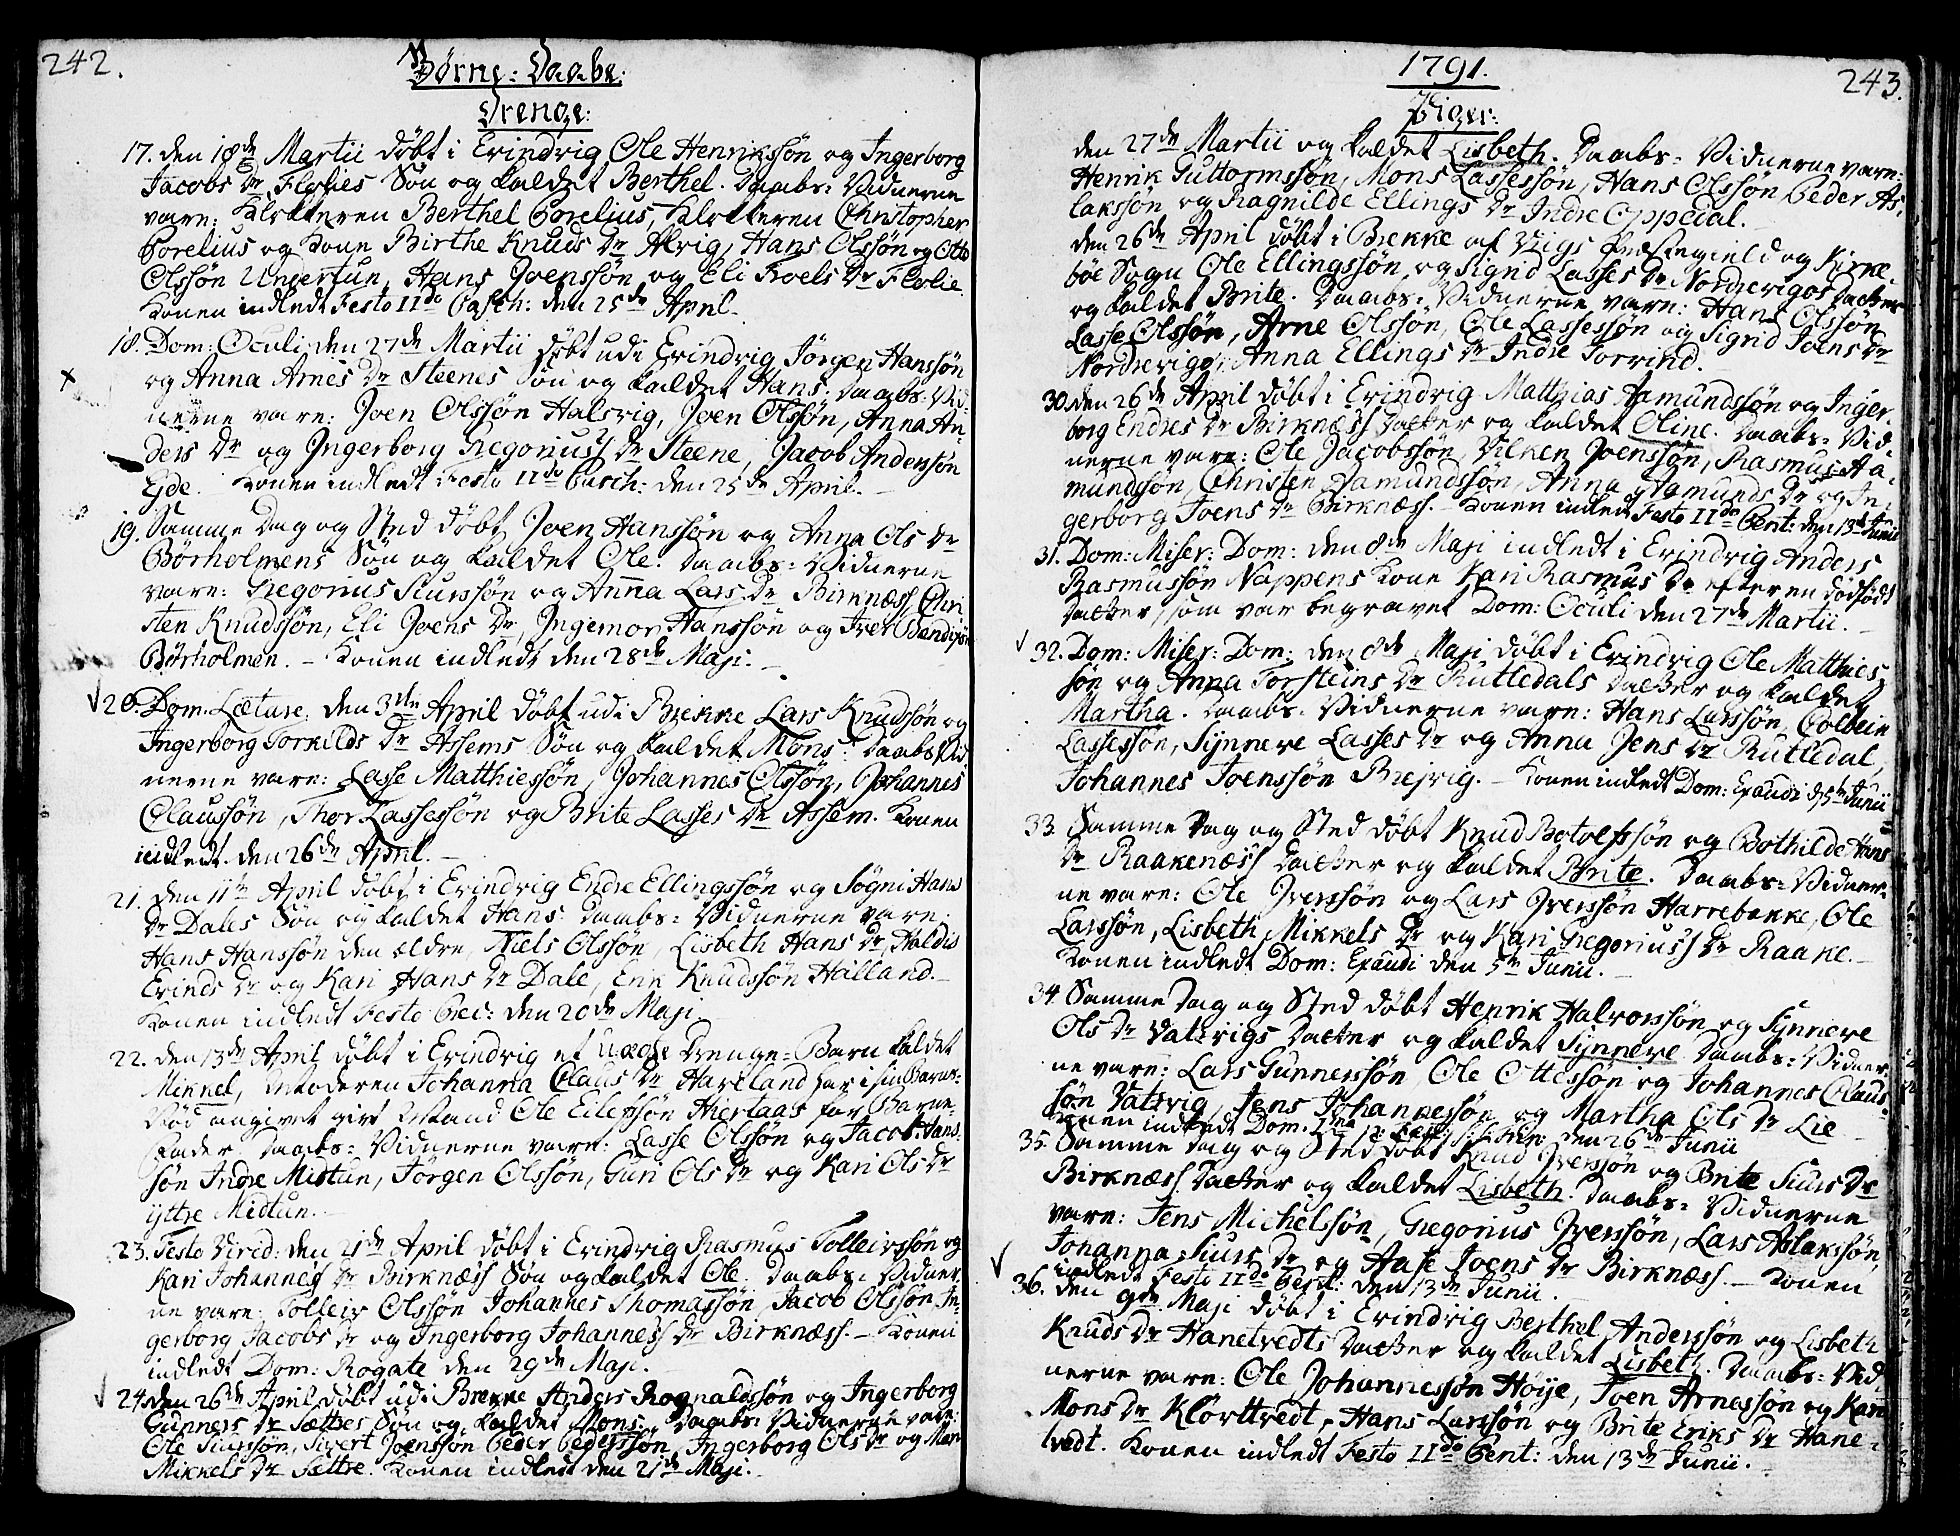 242.
Børne-Daabe:
Drenge:
17. den 18de Martii døbt i Evindvig Ole Henrikssøn og Ingerborg
Jacobs Dr Flolies Søn og kaldet Berthel. Daabs-Vidnerne
vare: Klokkeren Berthel Borelius, Klokkeren Christopher
Borelius og Kone Birthe Knuds Dr Alvig, Hans Olssøn og Otto
Olssøn Ungertun, Hans Joenssøn og Eli Troels Dr Flolie.
Konen indledt Festo IIdo Pasch: den 25de April.
18. Dom: Oculi, den 27de Martii døbt udi Evindvig Jørgen Hanssøn
og Anna Arnes Dr Steenes Søn og kaldet Hans. Daabs-Vid-
nerne vare: Joen Olssøn Halsvig, Joen Olssøn, Anna An-
ders Dr og Ingerborg Gregorius's Dr Steene, Jacob Anderssøn
Ejde. Konen indledt Festo IIdo Pasch: den 25de April.
19. Samme Dag og Sted døbt Joen Hanssøn og Anna Ols Dr
Børholmens Søn og kaldet Ole. Daabs-Vidnerne
vare: Gregorius Siurssøn og Anna Lars Dr Birknæss, Chri
sten Knudssøn, Eli Joens Dr, Ingemor Hanssøn og Iver Bendixøn
Børholmen. - Konen indledt den 28de Maji.
20. Dom. Lætare, den 3die April døbt udi Brekke Lars Knudssøn og
Ingerborg Torkilds Dr Assems Søn og kaldet Mons. Daabs Vid
nerne vare: Lasse Matthiessøn, Johannes Olssøn, Johannes
Claussøn, Thor Lassessøn og Brite Lasses Dr Assem. Konen
indledt den 26de April.
21. den 11te April døbt i Evindvig Endre Ellingssøn og Søgni Hans
Dr Dales Søn og kaldet Hans. Daabs-Vidnerne vare:
Hans Hanssøn den ældre, Niels Olssøn, Lisbeth Hans Dr, Haldis
Erinds Dr og Kari Hans Dr Dale, Erik Knudssøn Halland.
Konen indledt Festo Prec: den 20de Maji.
22. den 13de April døbt i Evindvig et uægte Drenge-Barn kaldet
Mikkel, Moderen Johanna Claus Dr Haveland har i sin Barns-
Nød angivet gift Mand Ole Eilerssøn Hiertaas for Barne-
Fader. Daabs-Vidnerne vare: Lasse Olssøn og Jacob Hans
søn Indre Mistun, Jørgen Olssøn, Guri Ols Dr og Kari Ols Dr
ijttre Midtun.
23. Festo Virid: den 21de April døbt i Evindvig Rasmus Tolleivssøn og
Kari Johannes's Dr Birknæss Søn og kaldet Ole. Daabs-Vidner
ne vare: Tolleiv Olssøn Johannes Thomassøn, Jacob Olssøn In-
gerborg Jacobs Dr og Ingerborg Johannes's Dr Birknæss. - Konen
indledt Dom: Rogate den 29de Maji.
24. den 26de April døbt udi Brekke Anders Rognaldssøn og Ingerborg
Gunners Dr Sættres Søn og kaldet Mons. Daabs-Vidnerne vare:
Ole Siurssøn, Sivert Joenssøn Peder Pederssøn, Ingerborg Ols Dr og Mari
Mikkels Dr Sættre. Konen indledt den 21de Maji.
1791.
243.
Piger:
den 27de Martii og kaldet Lisbeth. Daabs-Vidnerne vare:
Henrik Guttormssøn, Mons Lassessøn, Hans Olssøn Peder As-
lakssøn og Ragnilde Ellings Dr Indre Oppedal.
den 26de April døbt i Brekke af Viigs Præstegield og Kirke-
bøe Sogn Ole Ellingssøn og Sigrid Lasses Dr Nordrevigos Datter
og kaldet Brite. Daabs-Vidnerne vare: Hans Olssøn
Lasse Olssøn, Arne Olssøn, Ole Lassessøn og Sigrid Joens Dr
Nordrevigo, Anna Ellings Dr Indre Torvind.
30. den 26de April døbt i Evindvig Matthias Aamundssøn og Inger-
borg Endres Dr Birknæss Datter og kaldet Oline. Daabs-Vid-
nerne vare: Ole Jacobssøn, Vilken Joenssøn, Rasmus Aa-
mundssøn, Christen Aamundssøn, Anna Aamunds Dr og In-
gerborg Joens Dr Birknæss. - Konen indledt Festo IIdo Pent: den 13de Junii
31. Dom: Miser: Dom: den 8de Maji indledt i Evindvig Anders
Rasmussøn Nappens Kone Kari Rasmus Dr efter en dødfødt
Datter, som var begravet Dom: Oculi den 27de Martii.
32. Dom: Miser: Dom: den 8de Maji døbt i Evindvig Ole Matthies-
søn og Anna Torsteins Dr Rutledals Datter og kaldet
Martha. Daabs-Vidnerne vare: Hans Larssøn, Colbein
Lassessøn, Sijnneve Lasses Dr og Anna Jens Dr Rutledal,
Johannes Joenssøn Brejvig. - Konen indledt Dom: Exaudi d. 5te Junii
33. Samme Dag og Sted døbt Knud Botolfssøn og Bothilde Hans
Dr Raakenæss Datter og kaldet Brite. Daabs-Vidner-
ne vare: Ole Iverssøn og Lars Iverssøn Harrebakke, Ole
Larssøn, Lisbeth Mikkels Dr og Kari Gregorius's Dr Raake.
Konen indledt Dom: Exaudi den 5te Junii.
34. Samme Dag og Sted døbt Henrik Halvorssøn og Sijnneve
Ols Dr Vatsvigs Datter og kaldet Sijnneve. Daabs-Vidner-
ne vare: Lars Gunnerssøn, Ole Ottessøn og Johannes Claus-
søn Vatsvig, Jens Johannessøn og Martha Ols Dr Lie
Konen indledt Dom. 1ma p. den 26de Junii
35. Samme Dag og Sted døbt Knud Iverssøn og Brite Siurs Dr
Birknæss Datter og kaldet Lisbeth. Daabs-Vidnerne
vare: Jens Michelssøn, Gregorius Iverssøn, Lars Aslakssøn,
Johanna Siurs Dr og Aase Joens Dr Birknæss. - Konen
indledt Festo IIdo Pent: den 13de Junii.
36. den 9de Maji døbt i Evindvig Berthel Anderssøn og Lisbeth
Knuds Dr Hanetvedts Datter og kaldet Lisbeth. Daabs-Vid-
nerne vare: Ole Johannessøn Høije, Joen Arnessøn og Kari
Mons Dr Kløvtvedt, Hans Larssøn og Brite Eriks Dr Hane-
tvedt. Konen indledt Festo IIdo Pent: den 13de Junii.